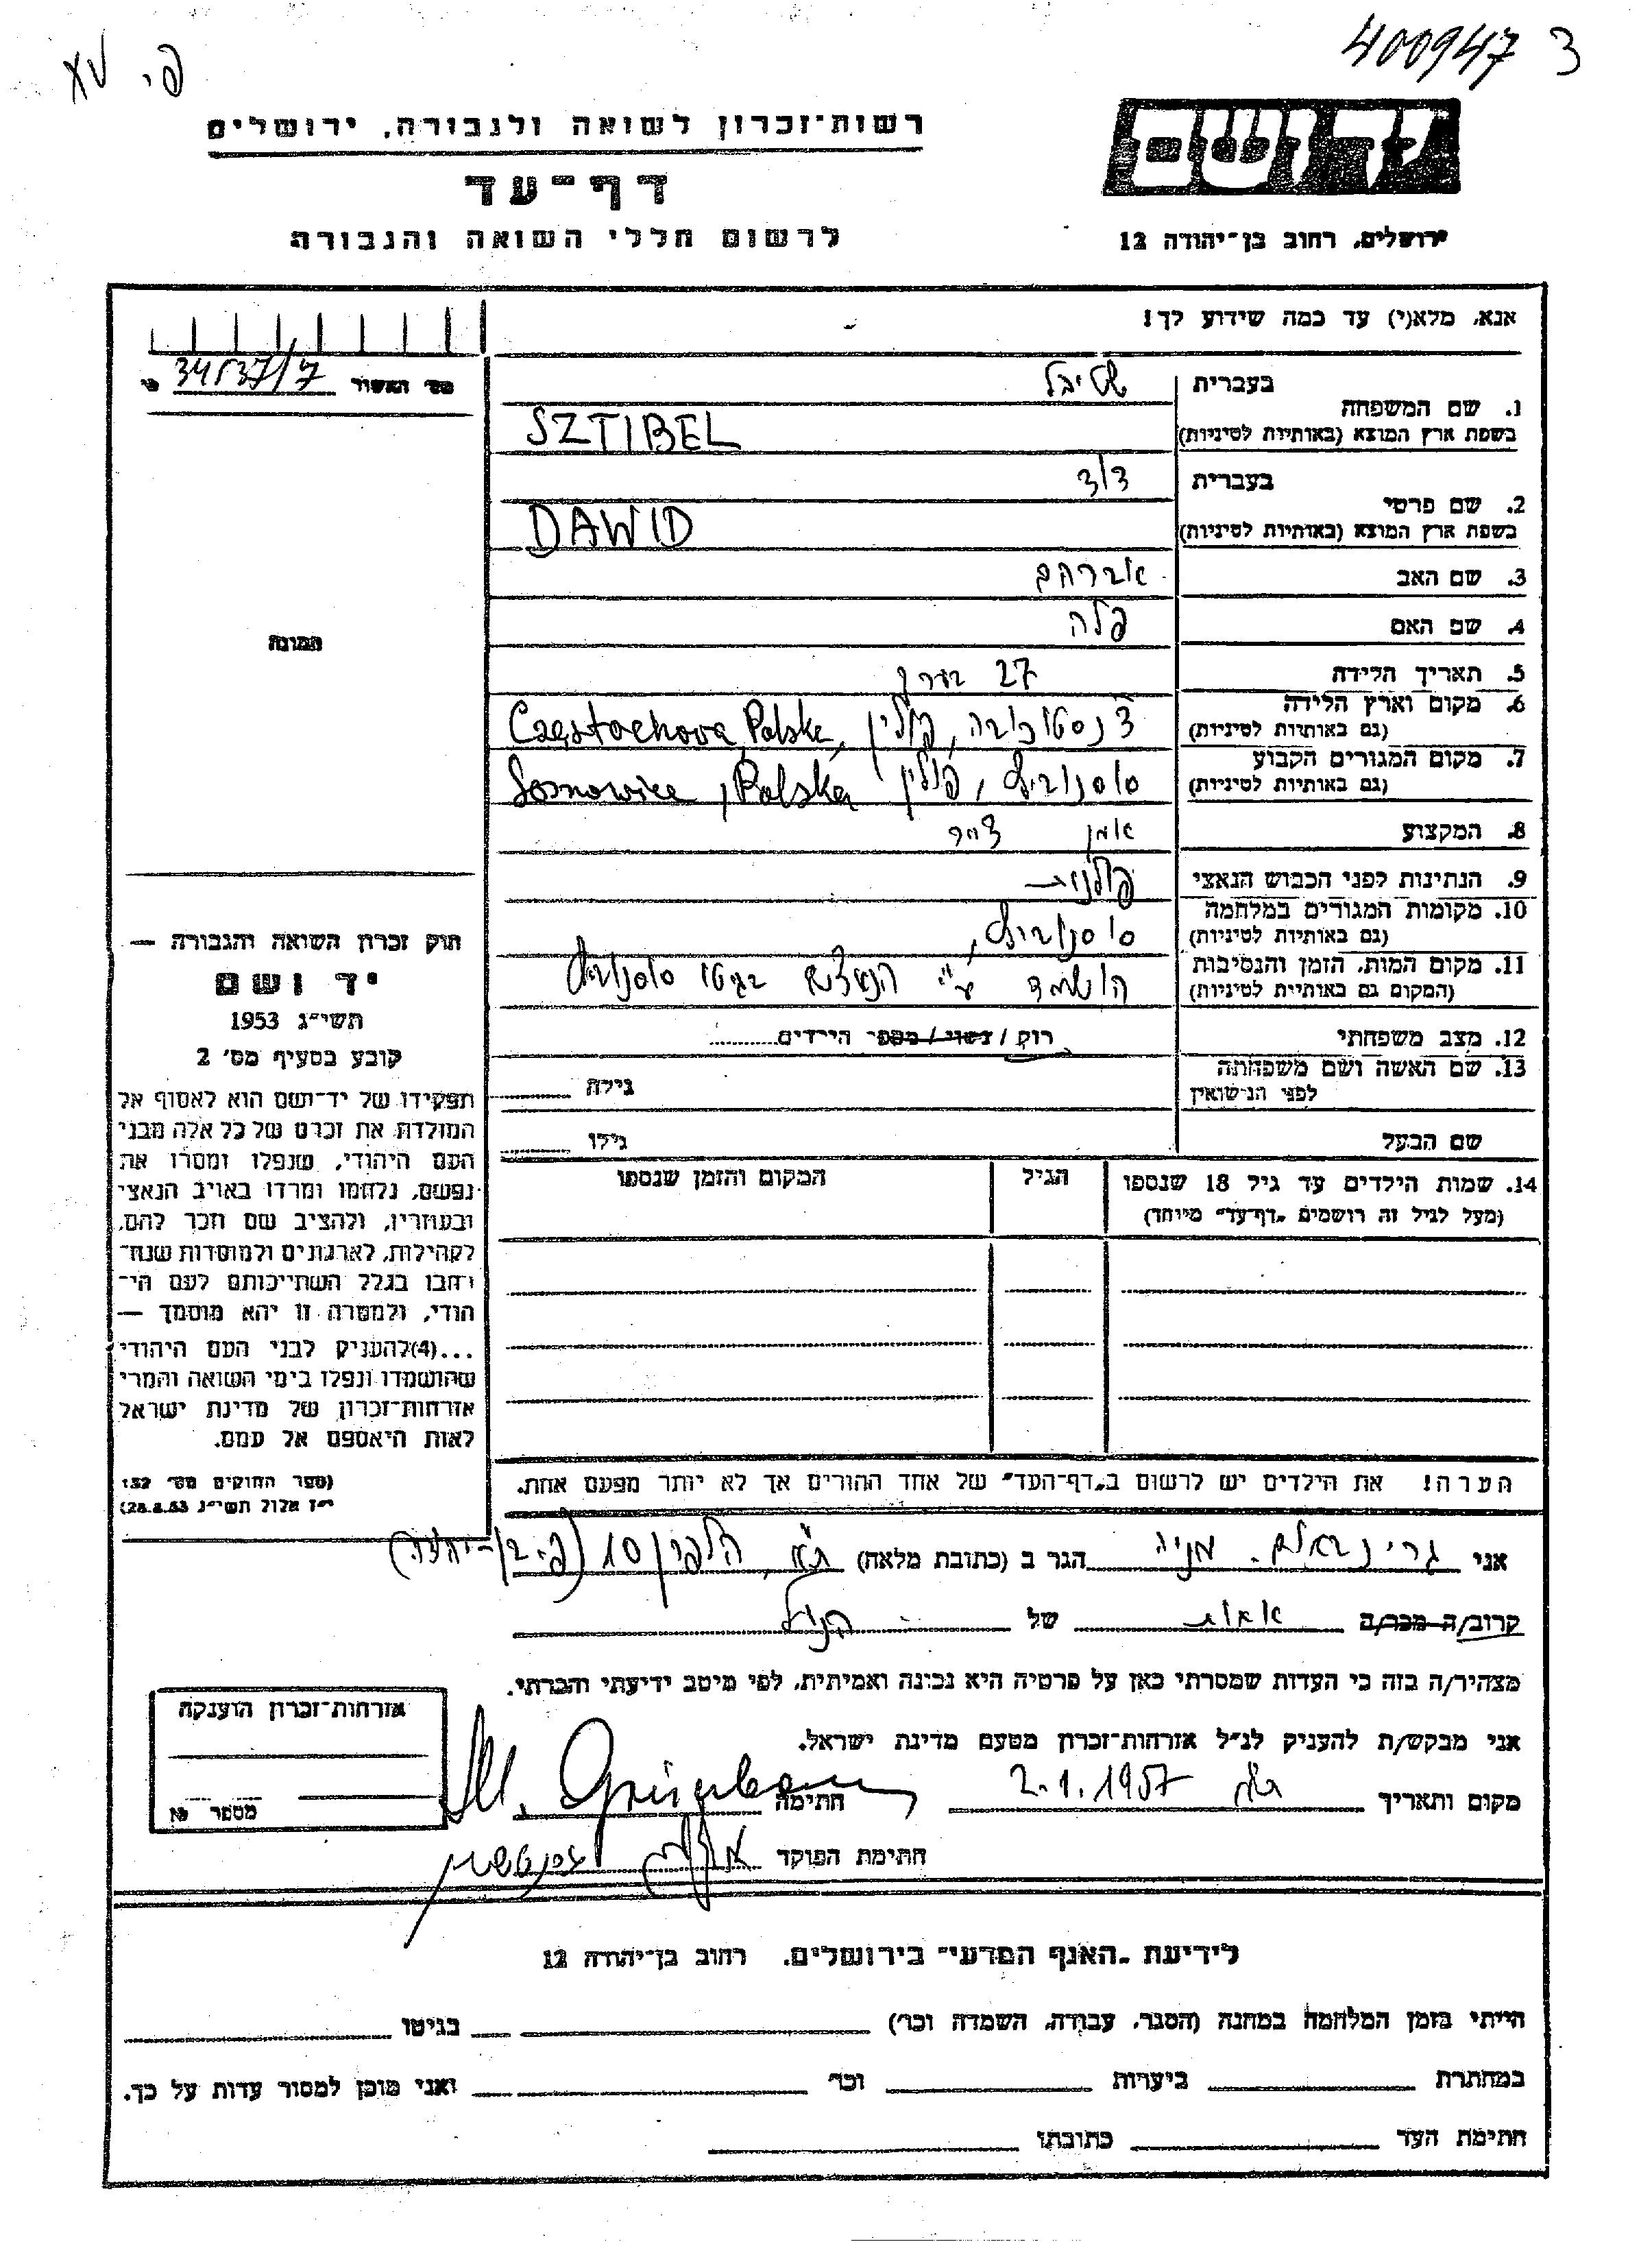 400947 3
רשות־זכרון לשואה ולגבורה, ירושלים
דף־עד
לרשום חללי השואה והגבורה
ידושם
ירושלים, רחוב בן־יהודה 12
אנא, מלא(י) עד כמה שידוע לך!
מס׳ האשור
בעברית שטיבל
1. שם המשפחה
בשפת ארץ המוצא (באותיות לטיניות) SZTIBEL
בעברית דוד
2. שם פרטי
בשפת ארץ המוצא (באותיות לטיניות) DAWID
3. שם האב אברהם
4. שם האם פלה
תמונה
5. תאריך הלידה 27
6. מקום וארץ הלידה
(גם באותיות לטיניות) צ׳נסטוכובה, פולין, Częstochowa, Polska
7. מקום המגורים הקבוע
(גם באותיות לטיניות) סוסנוביץ, פולין Sosnowice, Polska
8. המקצוע
9. הנתינות לפני הכבוש הנאצי פולנית
10. מקומות המגורים במלחמה
(גם באותיות לטיניות) סוסנוביץ,
11. מקום המות, הזמן והנסיבות
(המקום גם באותיות לטיניות) הושמד ע״י הנאצים בגיטו סוסנוביץ
12. מצב משפחתי רוק / נשוי / מספר הילדים
13. שם האשה ושם משפחתה
לפני הנישואין גילה
שם הבעל גילו
14. שמות הילדים עד גיל 18 שנספו הגיל המקום והזמן שנספו
(מעל לגיל זה רושמים „דף־עד״ מיוחד)
הערה! את הילדים יש לרשום ב„דף־העד״ של אחד ההורים אך לא יותר מפעם אחת.
חוק זכרון השואה והגבורה —
יד ושם
תשי״ג 1953
קובע בסעיף מס׳ 2
תפקידו של יד־ושם הוא לאסוף אל
המולדת את זכרם של כל אלה מבני
העם היהודי, שנפלו ומסרו את
נפשם, נלחמו ומרדו באויב הנאצי
ובעוזריו, ולהציב שם וזכר להם,
לקהילות, לארגונים ולמוסדות שנח־
רבו בגלל השתייכותם לעם הי־
הודי, ולמטרה זו יהא מוסמך —
...(4)להעניק לבני העם היהודי
שהושמדו ונפלו בימי השואה והמרי
אזרחות־זכרון של מדינת ישראל
לאות היאספם אל עמם.
(ספר החוקים מס׳ 132
י״ז אלול תשי״ג 28.8.53)
אני גרינבאום מניה הגר ב (כתובת מלאה) ת״א, הלפרין 10
קרוב/ה מכר/ה אחות של הנ״ל
מצהיר/ה בזה כי העדות שמסרתי כאן על פרטיה היא נכונה ואמיתית, לפי מיטב ידיעתי והכרתי.
אני מבקש/ת להעניק לנ״ל אזרחות־זכרון מטעם מדינת ישראל.
מקום ותאריך ת״א 2.1.1957 חתימה M. Grünbaum
חתימת הפוקד
אזרחות־זכרון הוענקה
מספר №
לידיעת „האגף המדעי״ בירושלים. רחוב בן־יהודה 12
הייתי בזמן המלחמה במחנה (הסגר, עבודה, השמדה וכו׳) בגיטו
במחתרת ביערות וכו׳ ואני מוכן למסור עדות על כך.
חתימת העד כתובתו